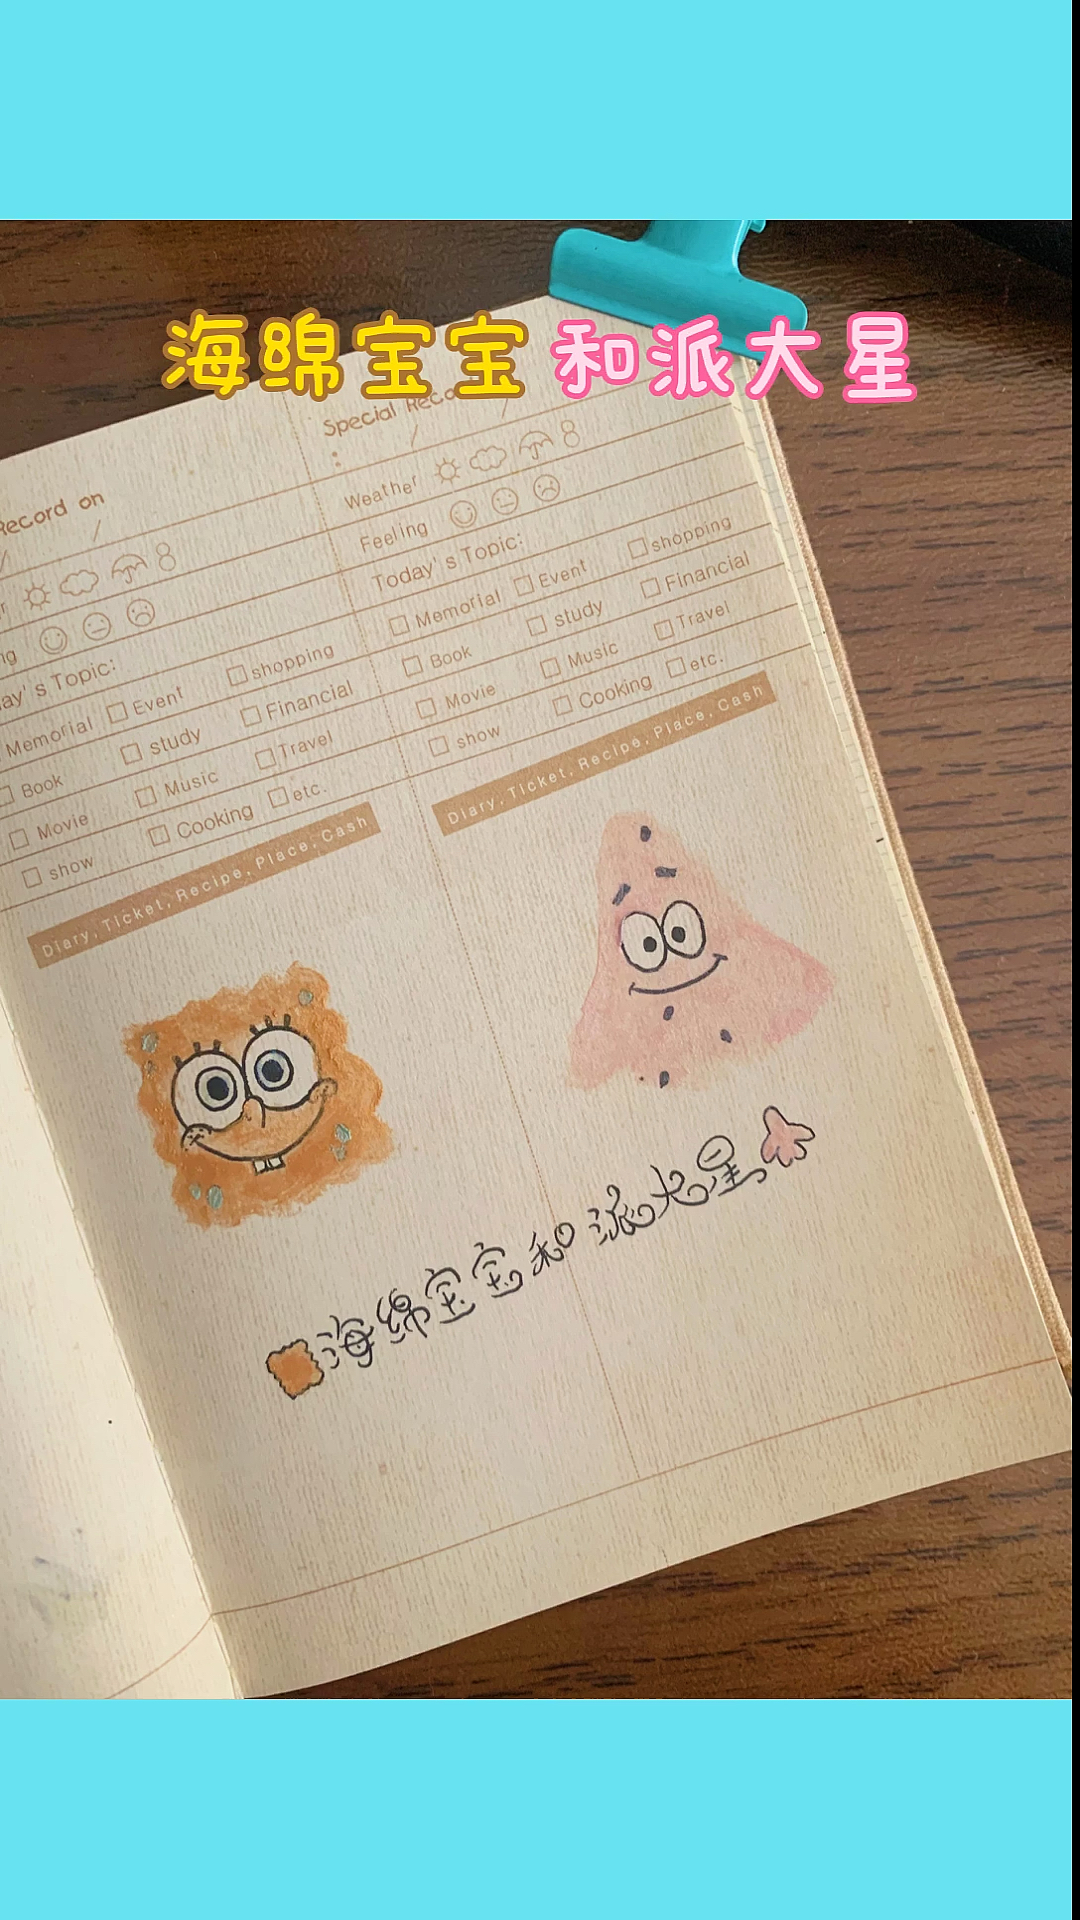 海绵宝宝和派大星
Special Reco
Weather
Feeling
Today's Topic:
Memorial Event shopping
Book study Financial
Movie Music Travel
show Cooking etc.
Diary, Ticket, Recipe, Place, Cash
Record on
ay's Topic:
Memorial Event shopping
Book study Financial
Movie Music Travel
show Cooking etc.
Diary, Ticket, Recipe, Place, Cash
海绵宝宝和派大星